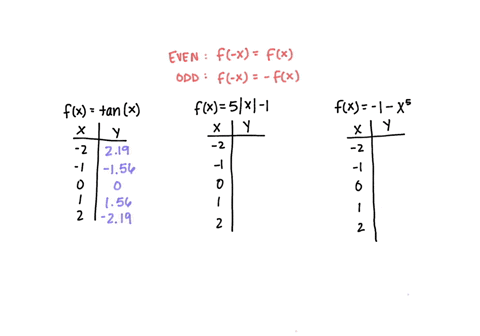 EVEN: f(-x) = f(x)
ODD: f(-x) = -f(x)
f(x) = tan(x)
x y
-2 2.19
-1 -1.56
0 0
1 1.56
2 -2.19
f(x) = 5|x| -1
x y
-2
-1
0
1
2
f(x) = -1 - x⁵
x y
-2
-1
0
1
2